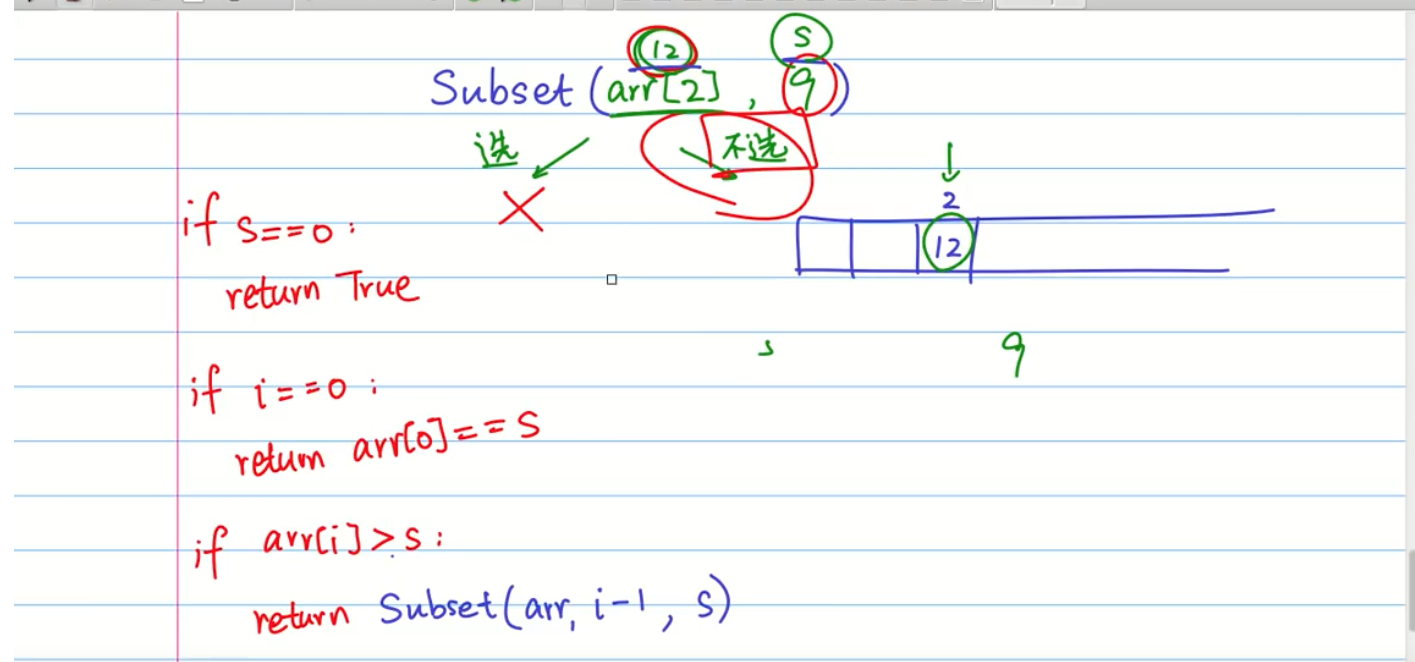 12 S
Subset (arr[2], 9)
选 不选
2
if s==0:
12
return True
s 9
if i==0:
return arr[0]==S
if arr[i]>s:
return Subset(arr, i-1, S)